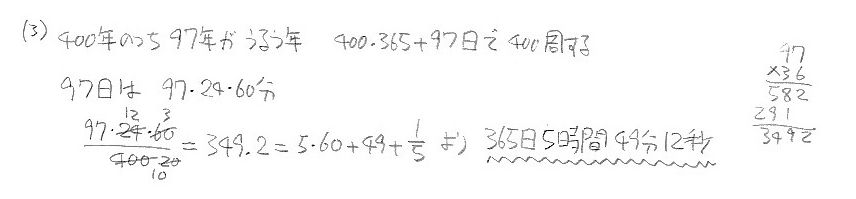 (3) 400年のうち 97年がうるう年 400・365+97日で400周する
97日は 97・24・60分
97・24・60/400 = 349.2 = 5・60+49+1/5 より 365日5時間49分12秒
12 3
20
10
97
×36
582
291
3492